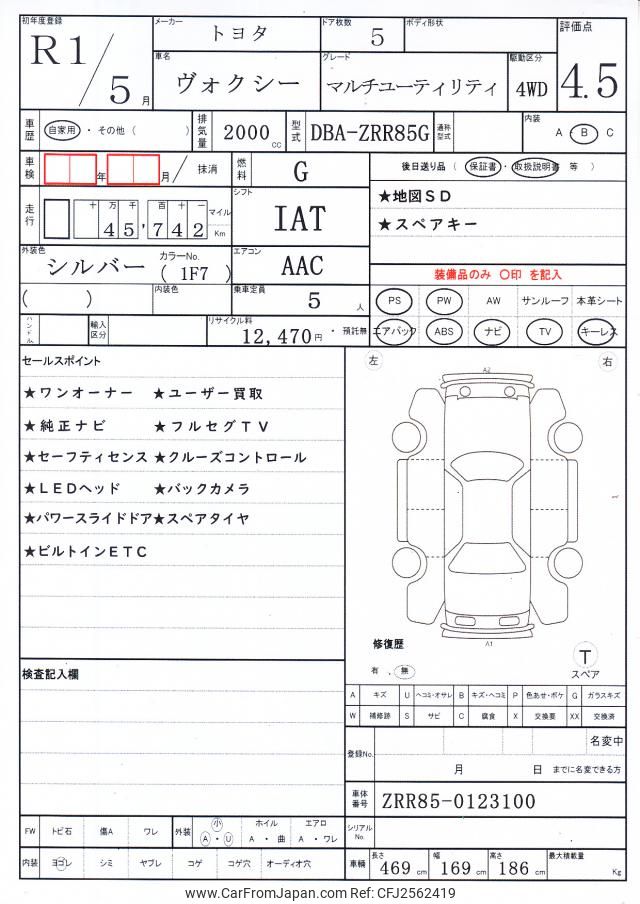 初年度登録
R1/5月
メーカー
トヨタ
ドア枚数
5
ボディ形状
評価点
4.5
車名
ヴォクシー
グレード
マルチユーティリティ
駆動区分
4WD
車歴
自家用・その他( )
排気量
2000 cc
型式
DBA-ZRR85G
通称型式
内装
A・B C
車検
年 月/ 抹消
燃料
G
後日送り品(保証書・取扱説明書 等 )
走行
十 万 千 百 十 一
45,742
マイル
Km
シフト
IAT
★地図SD
★スペアキー
外装色
シルバー
カラーNo.
( 1F7 )
エアコン
AAC
装備品のみ 〇印 を記入
( )
内装色
乗車定員
5人
PS PW AW サンルーフ 本革シート
ハンドル
輸入区分
リサイクル料
12,470円・預託無
エアバック ABS ナビ TV キーレス
セールスポイント
★ワンオーナー ★ユーザー買取
★純正ナビ ★フルセグTV
★セーフティセンス★クルーズコントロール
★LEDヘッド ★バックカメラ
★パワースライドドア★スペアタイヤ
★ビルトインETC
左 右
A2
A1
修復歴
有 . 無
T
スペア
検査記入欄
A キズ U ヘコミ・オサレ B キズ・ヘコミ P 色あせ・ボケ G ガラスキズ
W 補修跡 S サビ C 腐食 X 交換要 XX 交換済
登録No.
名変中
月 日 までに名変できる方
車体番号
ZRR85-0123100
FW トビ石 傷A ワレ
外装 小 A・U
ホイル A ・ 曲
エアロ A ・ ワレ
シリアルNo.
内装 ヨゴレ シミ ヤブレ コゲ コゲ穴 オーディオ穴
車輌
長さ 469 cm
幅 169 cm
高さ 186 cm
最大積載量 Kg
www.CarFromJapan.com Ref: CFJ2562419